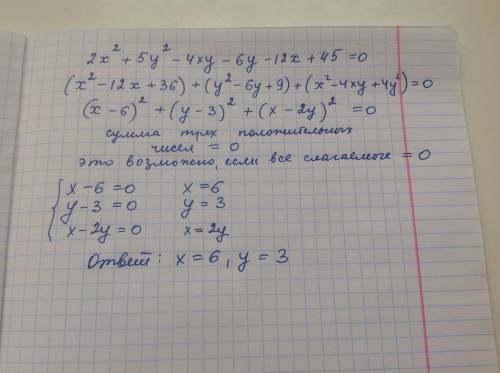 2x² + 5y² - 4xy - 6y - 12x + 45 = 0
(x² - 12x + 36) + (y² - 6y + 9) + (x² - 4xy + 4y²) = 0
(x - 6)² + (y - 3)² + (x - 2y)² = 0
сумма трех положительных
чисел = 0
это возможно, если все слагаемые = 0
x - 6 = 0 x = 6
y - 3 = 0 y = 3
x - 2y = 0 x = 2y
Ответ: x = 6, y = 3